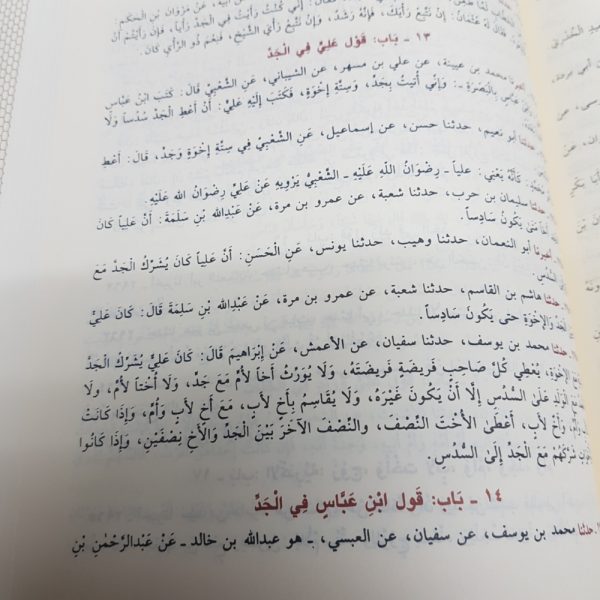 لَهُ عُثْمَانُ: إِنْ نَتَّبِعْ رَأْيَكَ، فَإِنَّهُ رَشَدٌ، وَإِنْ نَتَّبِعْ رَأْيَ الشَّيْخِ، فَنِعْمَ ذُو الرَّأْيِ كَانَ.
١٣ ـ بَابُ: قَوْلِ عَلِيٍّ فِي الْجَدِّ
محمد بن عيينة، عن علي بن مسهر، عن الشيباني، عَنِ الشَّعْبِيِّ قَالَ: كَتَبَ ابْنُ عَبَّاسٍ
بِالْبَصْرَةِ ـ: فَإِنِّي أُتِيتُ بِجَدٍّ، وَسِتَّةِ إِخْوَةٍ، فَكَتَبَ إِلَيْهِ عَلِيٌّ: أَنْ أَعْطِ الْجَدَّ سُدُساً وَلَا
أبو نعيم، حدثنا حسن، عن إسماعيل، عَنِ الشَّعْبِيِّ فِي سِتَّةِ إِخْوَةٍ وَجَدٍّ، قَالَ: أَعْطِ
كَأَنَّهُ يَعْنِي: علياً ـ رِضْوَانُ اللَّهِ عَلَيْهِ ـ الشَّعْبِيُّ يَرْوِيهِ عَنْ عَلِيٍّ رِضْوَانُ اللَّهِ عَلَيْهِ.
سليمان بن حرب، حدثنا شعبة، عن عمرو بن مرة، عَنْ عَبْدِاللَّهِ بْنِ سَلَمَةَ: أَنَّ عَلِياً كَانَ
حَتَّى يَكُونَ سَادِساً.
أبو النعمان، حدثنا وهيب، حدثنا يونس، عَنِ الْحَسَنِ: أَنَّ عَلِياً كَانَ يُشَرِّكُ الْجَدَّ مَعَ
السُّدُسِ.
حدثنا هاشم بن القاسم، حدثنا شعبة، عن عمرو بن مرة، عَنْ عَبْدِاللَّهِ بْنِ سَلِمَةَ قَالَ: كَانَ عَلِيٌّ
الْجَدَّ وَالإِخْوَةَ حتى يَكُونَ سَادِساً.
حدثنا محمد بن يوسف، حدثنا سفيان، عن الأعمش، عَنْ إِبْرَاهِيمَ قَالَ: كَانَ عَلِيٌّ يُشَرِّكُ الْجَدَّ
يُعْطِي كُلَّ صَاحِبِ فَرِيضَةٍ فَرِيضَتَهُ، وَلَا يُوَرِّثُ أَخاً لأُمٍّ مَعَ جَدٍّ، وَلَا أُخْتاً لأُمٍّ، ولَا
الْوَلَدِ عَلَىٰ السُّدُسِ إِلَّا أَنْ يَكُونَ غَيْرَهُ، وَلَا يُقَاسِمُ بِأَخٍ لأَبٍ، مَعَ أَخٍ لأَبٍ وَأُمٍّ، وَإِذَا كَانَتْ
وَأَخٌ لأَبٍ، أَعْطَىٰ الأُخْتَ النِّصْفَ، وَالنِّصْفَ الآخَرَ بَيْنَ الْجَدِّ وَالأَخِ نِصْفَيْنِ، وَإِذَا كَانُوا
شَرَّكَهُمْ مَعَ الْجَدِّ إِلَىٰ السُّدُسِ.
١٤ ـ بَابُ: قَوْلِ ابْنِ عَبَّاسٍ فِي الْجَدِّ
حدثنا محمد بن يوسف، عن سفيان، عن العبسي، ـ هو عبدالله بن خالد ـ عَنْ عَبْدِالرَّحْمٰنِ بْنِ